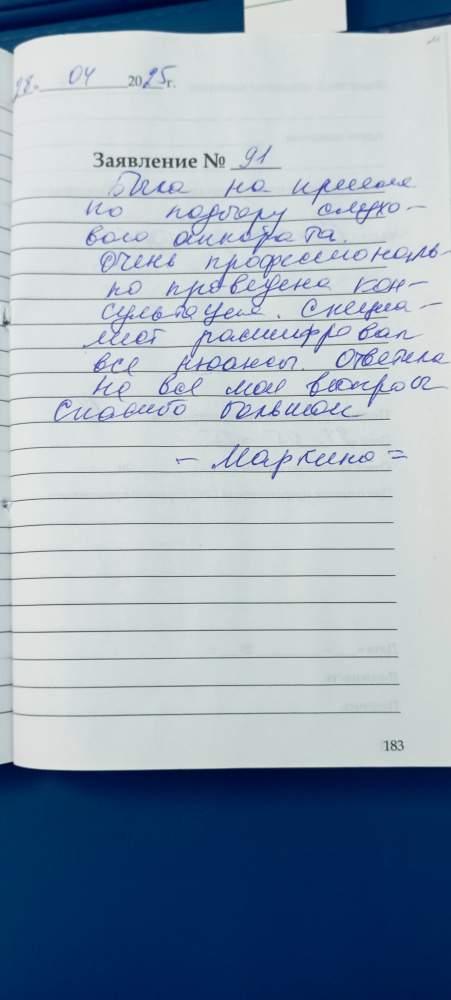 28. 04 2025г.
Заявление № 91
Была на приеме
по подбору слухо-
вого аппарата.
Очень профессиональ-
но проведена кон-
сультация. Специа-
лист расшифровал
все нюансы. Ответила
на все мои вопросы
Спасибо большое
- Маркина =
183